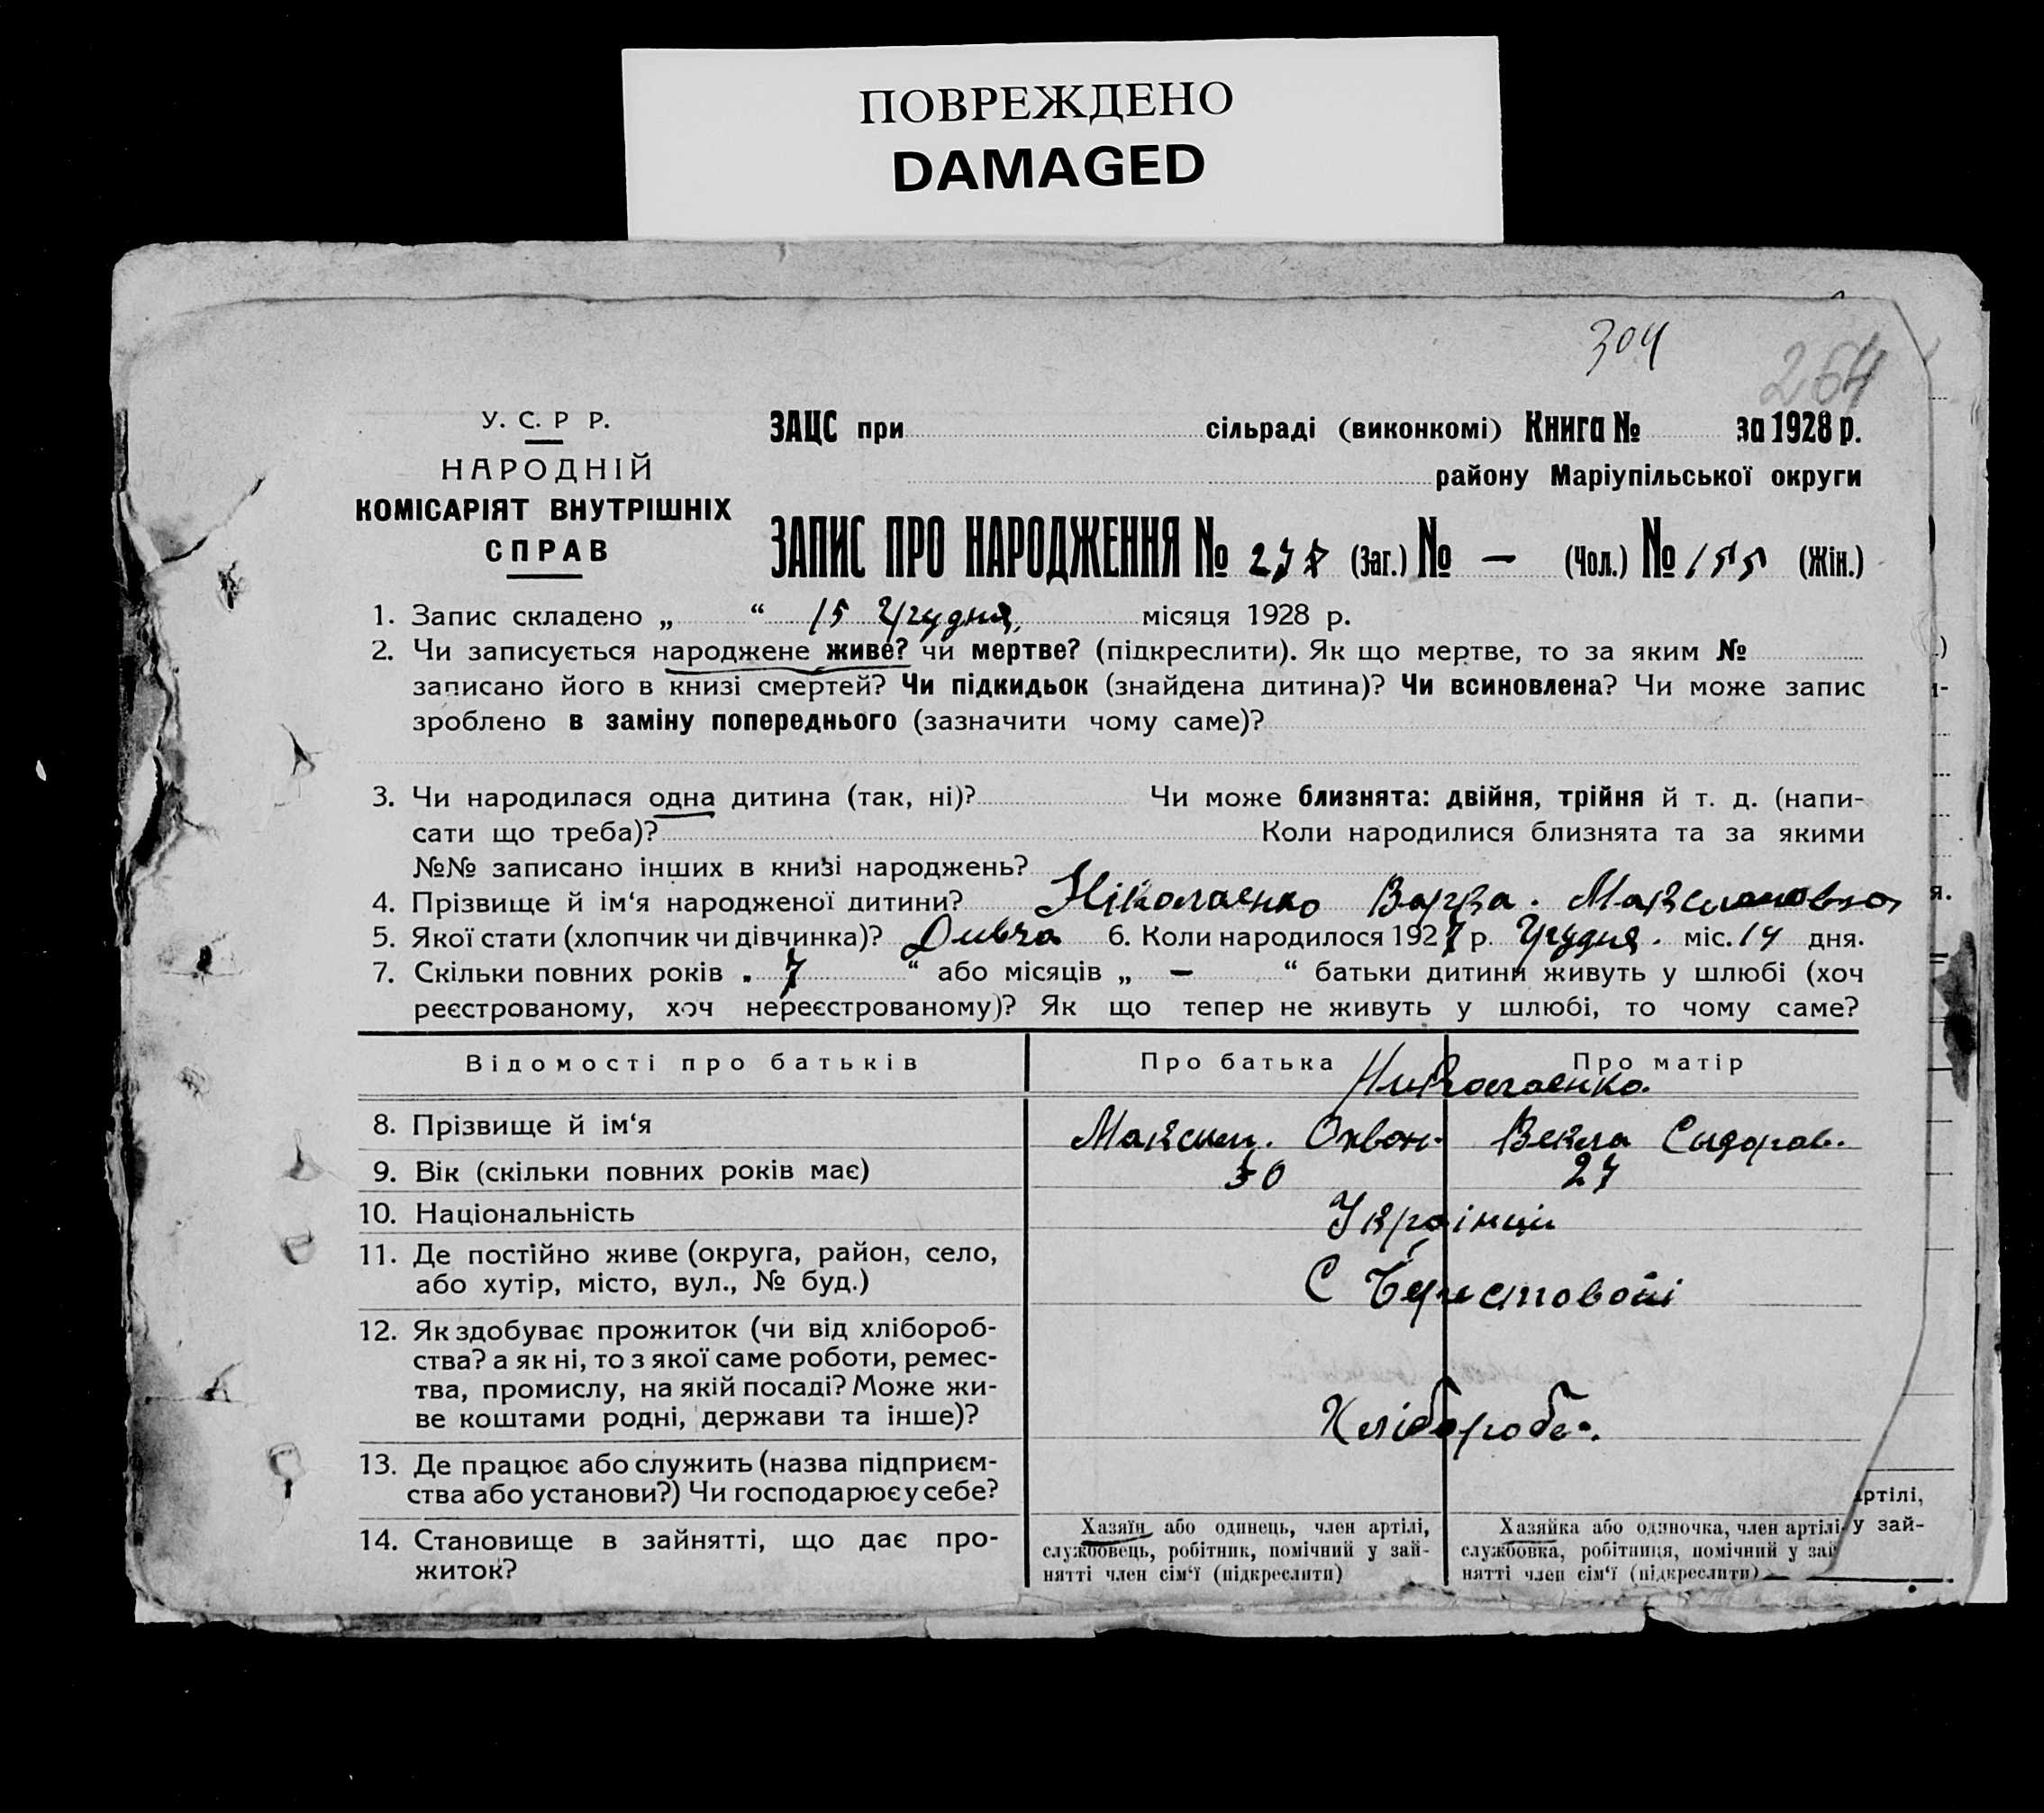 ПОВРЕЖДЕНО
DAMAGED
304
264
У. С. Р Р.
НАРОДНІЙ
КОМІСАРІЯТ ВНУТРІШНІХ
СПРАВ
ЗАЦС при сільраді (виконкомі) Книга № за 1928 р.
району Маріупільської округи
ЗАПИС ПРО НАРОДЖЕННЯ № 278 (Заг.) № — (Чол.) № 155 (Жін.)
1. Запис складено „ “ 15 Грудня місяця 1928 р.
2. Чи записується народжене живе? чи мертве? (підкреслити). Як що мертве, то за яким №
записано його в книзі смертей? Чи підкидьок (знайдена дитина)? Чи всиновлена? Чи може запис
зроблено в заміну попереднього (зазначити чому саме)?
3. Чи народилася одна дитина (так, ні)? Чи може близнята: двійня, трійня й т. д. (напи-
сати що треба)? Коли народилися близнята та за якими
№№ записано інших в книзі народжень?
4. Прізвище й ім‘я народженої дитини? Ніколаенко Варка. Максимовна
5. Якої стати (хлопчик чи дівчинка)? Дивча 6. Коли народилося 1927 р. Грудня. міс. 14 дня.
7. Скільки повних років „ 7 “ або місяців „ — “ батьки дитини живуть у шлюбі (хоч
реєстрованому, хоч нереєстрованому)? Як що тепер не живуть у шлюбі, то чому саме?
Відомості про батьків Про батька Про матір
Николаенко.
8. Прізвище й ім‘я Максим. Охвон. Векла Сыдоров.
9. Вік (скільки повних років має) 30 27
10. Національність Українци
11. Де постійно живе (округа, район, село,
або хутір, місто, вул., № буд.) С Берестовойі
12. Як здобуває прожиток (чи від хлібороб-
ства? а як ні, то з якої саме роботи, ремес-
тва, промислу, на якій посаді? Може жи-
ве коштами родні, держави та інше)? Хлібороби.
13. Де працює або служить (назва підприєм-
ства або установи?) Чи господарює у себе?
14. Становище в зайнятті, що дає про-
житок?
Хазяїн або одинець, член артілі,
службовець, робітник, помічний у зай-
нятті член сім‘ї (підкреслити)
Хазяйка або одиночка, член артілі
службовка, робітниця, помічний у зай
нятті член сім‘ї (підкреслити)
ртілі,
у зай-